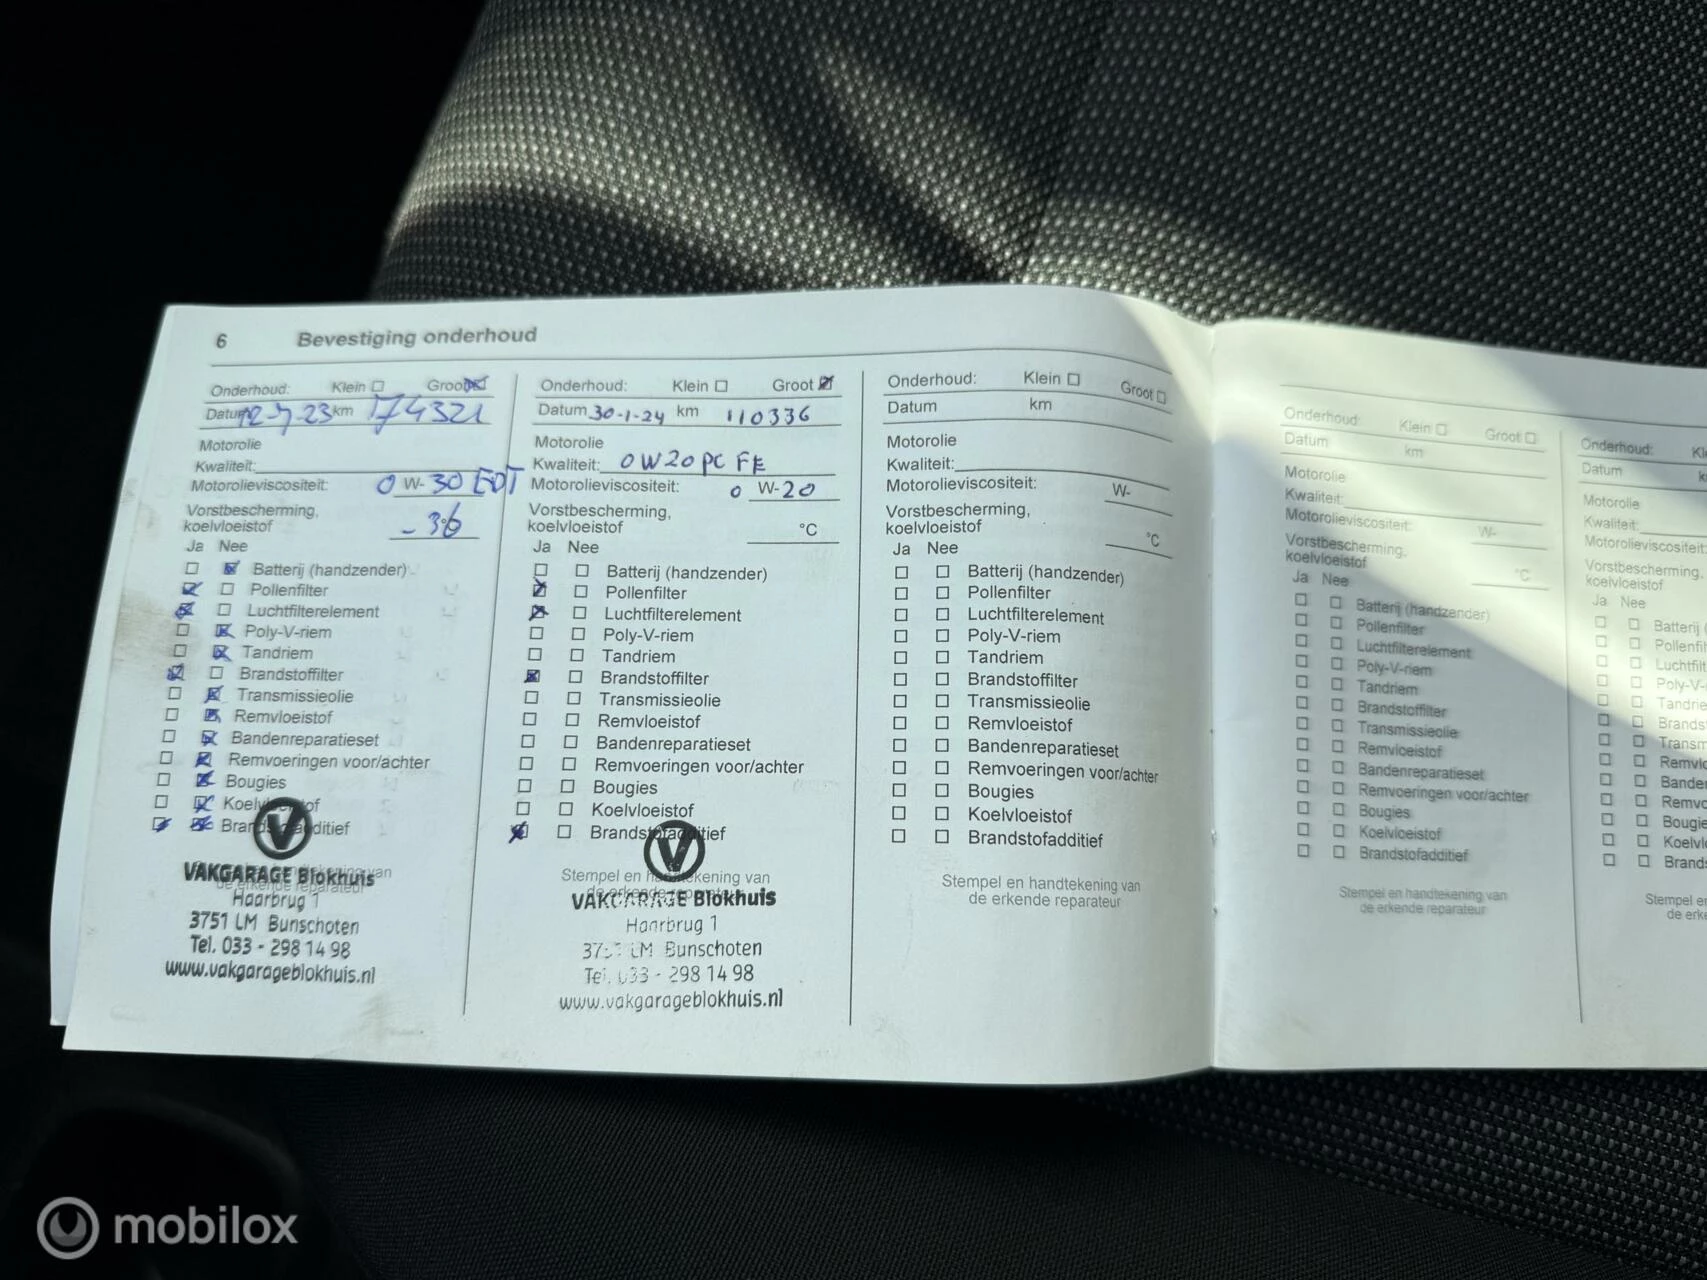 6 Bevestiging onderhoud
Onderhoud: Klein Groot
Datum 12-7-23 km 174321
Motorolie
Kwaliteit:
Motorolieviscositeit: 0 W-30 EDT
Vorstbescherming,
koelvloeistof -36
Ja Nee
Batterij (handzender)
Pollenfilter
Luchtfilterelement
Poly-V-riem
Tandriem
Brandstoffilter
Transmissieolie
Remvloeistof
Bandenreparatieset
Remvoeringen voor/achter
Bougies
Koelvloeistof
Brandstofadditief
Stempel en handtekening van
de erkende reparateur
VAKGARAGE Blokhuis
Haarbrug 1
3751 LM Bunschoten
Tel. 033 - 298 14 98
www.vakgarageblokhuis.nl
Onderhoud: Klein Groot
Datum 30-1-24 km 110336
Motorolie
Kwaliteit: 0W20 PC FE
Motorolieviscositeit: 0 W-20
Vorstbescherming,
koelvloeistof °C
Ja Nee
Batterij (handzender)
Pollenfilter
Luchtfilterelement
Poly-V-riem
Tandriem
Brandstoffilter
Transmissieolie
Remvloeistof
Bandenreparatieset
Remvoeringen voor/achter
Bougies
Koelvloeistof
Brandstofadditief
Stempel en handtekening van
de erkende reparateur
VAKGARAGE Blokhuis
Haarbrug 1
3751 LM Bunschoten
Tel. 033 - 298 14 98
www.vakgarageblokhuis.nl
Onderhoud: Klein Groot
Datum km
Motorolie
Kwaliteit:
Motorolieviscositeit: W-
Vorstbescherming,
koelvloeistof °C
Ja Nee
Batterij (handzender)
Pollenfilter
Luchtfilterelement
Poly-V-riem
Tandriem
Brandstoffilter
Transmissieolie
Remvloeistof
Bandenreparatieset
Remvoeringen voor/achter
Bougies
Koelvloeistof
Brandstofadditief
Stempel en handtekening van
de erkende reparateur
Onderhoud: Klein Groot
Datum km
Motorolie
Kwaliteit:
Motorolieviscositeit: W-
Vorstbescherming,
koelvloeistof °C
Ja Nee
Batterij (handzender)
Pollenfilter
Luchtfilterelement
Poly-V-riem
Tandriem
Brandstoffilter
Transmissieolie
Remvloeistof
Bandenreparatieset
Remvoeringen voor/achter
Bougies
Koelvloeistof
Brandstofadditief
Stempel en handtekening van
de erkende reparateur
Onderhoud: Kl
Datum k
Motorolie
Kwaliteit:
Motorolieviscositeit:
Vorstbescherming,
koelvloeistof
Ja Nee
Batterij (
Pollenfil
Luchtfil
Poly-V-
Tandrie
Brands
Transm
Remvlo
Banden
Remvo
Bougie
Koelvl
Brands
Stempel e
de erk
mobilox